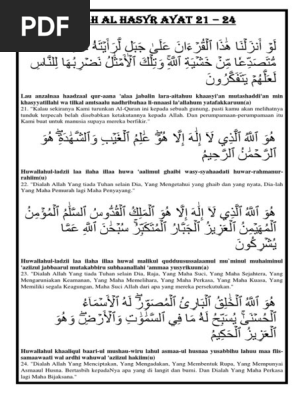 PDF
AH AL HASYR AYAT 21 – 24
لَوْ أَنزَلْنَا هَٰذَا الْقُرْءَانَ عَلَىٰ جَبَلٍ لَّرَأَيْتَهُ
مُّتَصَدِّعًا مِّنْ خَشْيَةِ اللَّهِ وَتِلْكَ الْأَمْثَٰلُ نَضْرِبُهَا لِلنَّاسِ
لَعَلَّهُمْ يَتَفَكَّرُونَ
Lau anzalnaa haadzaal qur-aana 'alaa jaballu lara-aitahu khaasyi'an mutashaddi'an min
khasyyatillahi wa tilkal amtsaalu nadhribuhaa li-nnaasi la'allahum yatafakkaruun(a)
21. "Kalau sekiranya Kami turunkan Al-Quran ini kepada sebuah gunung, pasti kamu akan melihatnya
tunduk terpecah belah disebabkan ketakutannya kepada Allah. Dan perumpamaan-perumpamaan itu
Kami buat untuk manusia supaya mereka berfikir."
هُوَ اللَّهُ الَّذِي لَا إِلَٰهَ إِلَّا هُوَ عَٰلِمُ الْغَيْبِ وَالشَّهَٰدَةِ هُوَ
الرَّحْمَٰنُ الرَّحِيمُ
Huwallahul-ladzii laa ilaha illaa huwa 'aalimul ghaibi wasy-syahaadati huwar-rahmanur-
rahiim(u)
22. "Dialah Allah Yang tiada Tuhan selain Dia, Yang Mengetahui yang ghaib dan yang nyata, Dia-lah
Yang Maha Pemurah lagi Maha Penyayang."
هُوَ اللَّهُ الَّذِي لَا إِلَٰهَ إِلَّا هُوَ الْمَلِكُ الْقُدُّوسُ السَّلَٰمُ الْمُؤْمِنُ
الْمُهَيْمِنُ الْعَزِيزُ الْجَبَّارُ الْمُتَكَبِّرُ سُبْحَٰنَ اللَّهِ عَمَّا
يُشْرِكُونَ
Huwallahul-ladzii laa ilaha illaa huwal malikul qudduusussalaamul mu'minul muhaiminul
'aziizul jabbaarul mutakabbiru subhaanallahi 'ammaa yusyrikuun(a)
23. "Dialah Allah Yang tiada Tuhan selain Dia, Raja, Yang Maha Suci, Yang Maha Sejahtera, Yang
Mengaruniakan Keamanan, Yang Maha Memelihara, Yang Maha Perkasa, Yang Maha Kuasa, Yang
Memiliki segala Keagungan, Maha Suci Allah dari apa yang mereka persekutukan."
هُوَ اللَّهُ الْخَٰلِقُ الْبَارِئُ الْمُصَوِّرُ لَهُ الْأَسْمَاءُ
الْحُسْنَىٰ يُسَبِّحُ لَهُ مَا فِي السَّمَٰوَٰتِ وَالْأَرْضِ وَهُوَ
الْعَزِيزُ الْحَكِيمُ
Huwallahul khaaliqul baari-ul mushau-wiru lahul asmaa-ul husnaa yusabbihu lahuu maa fiis-
samaawaati wal ardhi wahuwal 'aziizul hakiim(u)
24. "Dialah Allah Yang Menciptakan, Yang Mengadakan, Yang Membentuk Rupa, Yang Mempunyai
Asmaaul Husna. Bertasbih kepadaNya apa yang di langit dan bumi. Dan Dialah Yang Maha Perkasa
lagi Maha Bijaksana."